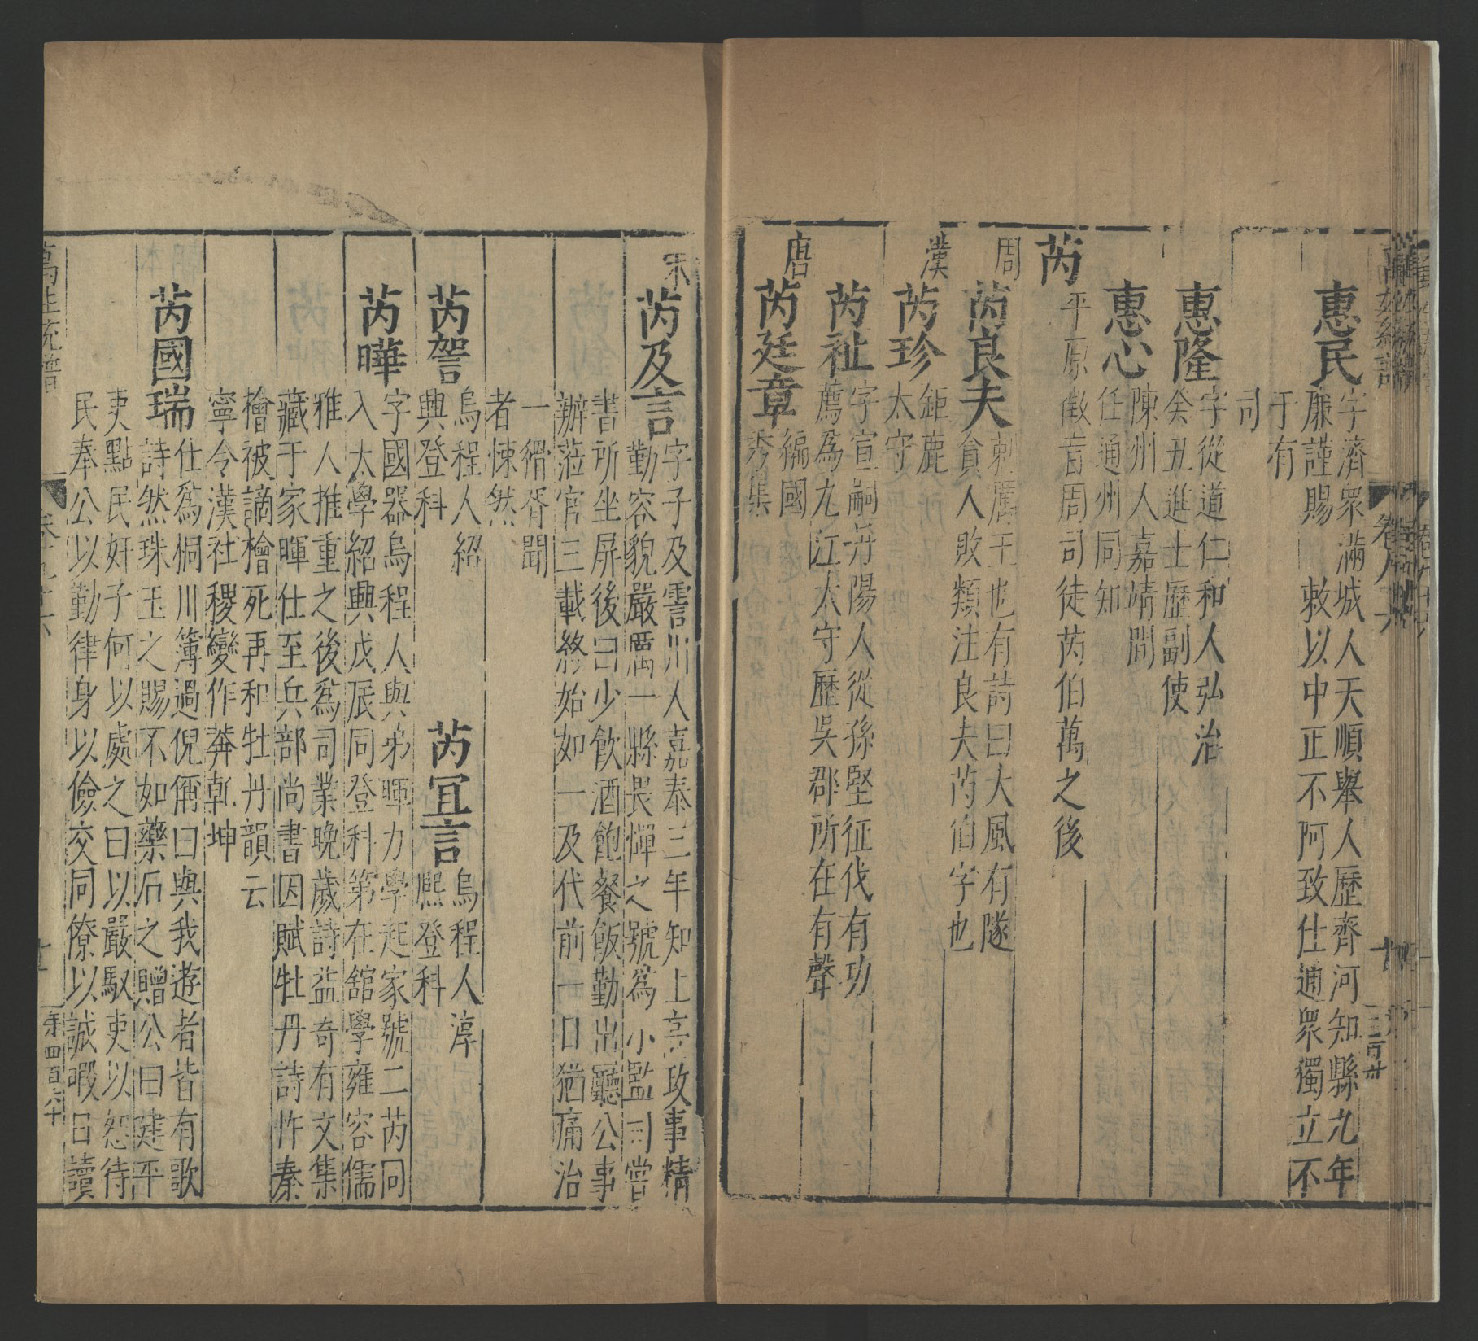 惠民字濟衆滿城人天順舉人歷齊河知縣九年
廉謹賜 敕以中正不阿致仕逦衆獨立不
于有
司
惠隆字從道仁和人弘治
癸丑進士歷副使
惠心陳州人嘉靖間
任通州同知
芮平原徵音周司徒芮伯萬之後
周
芮良夫刺厲王也有詩曰大風有隧
貪人敗類注良夫芮伯字也
漢
芮珍鉅鹿
太守
芮祉字宣嗣丹陽人從孫堅征伐有功
薦為九江太守歷吳郡所在有聲
唐
芮廷章編國
秀集
宋
芮及言字子及霅川人嘉泰三年知上高政事精
勤容貌嚴厲一縣畏憚之號爲小監司嘗
書所坐屏後曰少飲酒飽餐飯勤出聽公事
辦蒞官三載終始如一及代前一日猶痛治
一猾胥聞
者悚然
芮㓰烏程人紹
興登科
芮宜言烏程人淳
熙登科
芮曄字國器烏程人與弟暉力學起家號二芮同
入太學紹興戊辰同登科第在舘學雍容儒
雅人推重之後爲司業晚歲詩益奇有文集
藏于家暉仕至兵部尚書因賦牡丹詩忤秦
檜被謫檜死再和牡丹韻云
寧令漢社稷變作莽乾坤
芮國瑞仕爲桐川簿過倪儞曰與我遊者皆有歌
詩然珠玉之賜不如藥石之贈公曰建平
吏點民奸子何以處之曰以嚴馭吏以恕待
民奉公以勤律身以儉交同僚以誠暇日讀
萬姓統譜